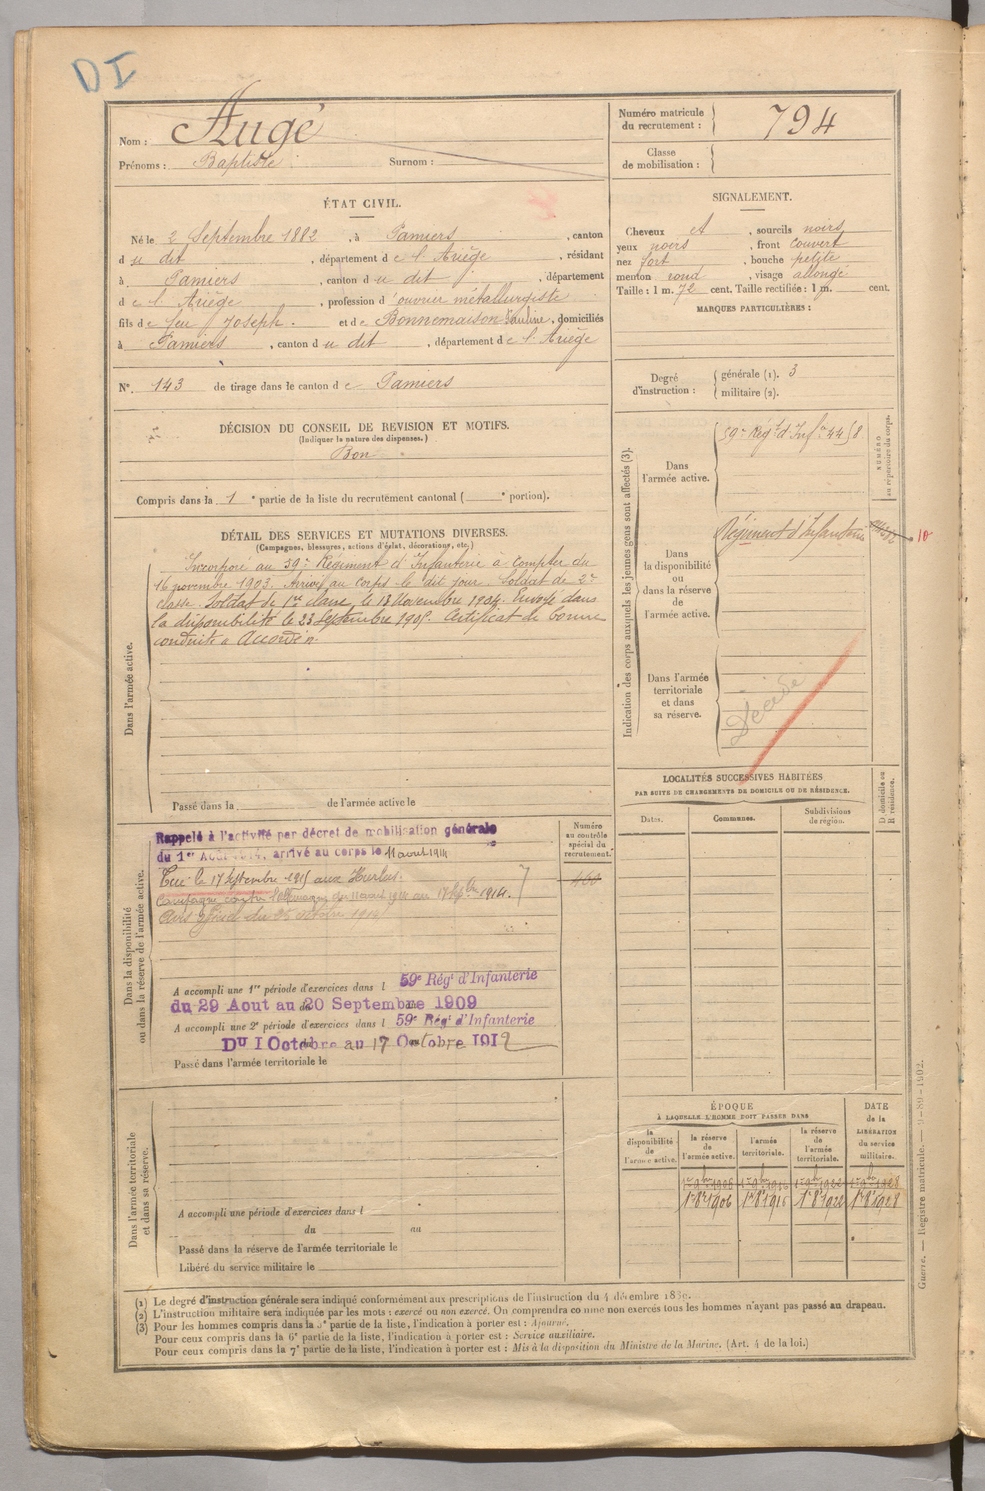 DI
Nom : Augé
Prénoms : Baptiste Surnom :
Numéro matricule du recrutement : 794
Classe de mobilisation :
ÉTAT CIVIL.
Né le 2 Septembre 1882, à Pamiers, canton
du dit, département de l'Ariège, résidant
à Pamiers, canton du dit, département
de l'Ariège, profession d'ouvrier métallurgiste
fils de feu Joseph. et de Bonnemaison Pauline, domiciliés
à Pamiers, canton du dit, département de l'Ariège
N° 143 de tirage dans le canton de Pamiers
SIGNALEMENT.
Cheveux et, sourcils noirs
yeux noirs, front couvert
nez fort, bouche petite
menton rond, visage allongé
Taille : 1 m. 72 cent. Taille rectifiée : 1 m. cent.
MARQUES PARTICULIÈRES :
Degré d'instruction : générale (1). 3
militaire (2).
DÉCISION DU CONSEIL DE REVISION ET MOTIFS.
(Indiquer la nature des dispenses.)
Bon
Compris dans la 1e partie de la liste du recrutement cantonal ( e portion).
DÉTAIL DES SERVICES ET MUTATIONS DIVERSES.
(Campagnes, blessures, actions d'éclat, décorations, etc.)
Dans l'armée active.
Incorporé au 59e Régiment d'Infanterie à compter du
16 novembre 1903. Arrivé au corps le dit jour. Soldat de 2e
classe. Soldat de 1re classe le 13 Novembre 1904. Envoyé dans
la disponibilité le 23 Septembre 1905. Certificat de bonne
conduite "Accordé".
Passé dans la de l'armée active le
Indication des corps auxquels les jeunes gens sont affectés (3).
NUMÉRO au répertoire du corps.
Dans l'armée active.
59e Régt d'Infie 4458
Dans la disponibilité ou dans la réserve de l'armée active.
Régiment d'Infanterie
10
Dans l'armée territoriale et dans sa réserve.
Décédé
LOCALITÉS SUCCESSIVES HABITÉES
PAR SUITE DE CHANGEMENTS DE DOMICILE OU DE RÉSIDENCE.
Dates. Communes. Subdivisions de région. D domicile ou R résidence.
Dans la disponibilité ou dans la réserve de l'armée active.
Numéro au contrôle spécial du recrutement.
Rappelé à l'activité par décret de mobilisation générale
du 1er Août 1914, arrivé au corps le 11 aout 1914
Tué le 17 Septembre 1915 aux Hurlus.
Campagne contre l'Allemagne du 11 aout 1914 au 17 7bre 1914.
A accompli une 1re période d'exercices dans l 59e Régt d'Infanterie
du 29 Aout au 20 Septembre 1909
A accompli une 2e période d'exercices dans l 59e Régt d'Infanterie
Du 1 Octobre au 17 Octobre 1912
Passé dans l'armée territoriale le
Dans l'armée territoriale et dans sa réserve.
A accompli une période d'exercices dans l
du au
Passé dans la réserve de l'armée territoriale le
Libéré du service militaire le
ÉPOQUE
À LAQUELLE L'HOMME DOIT PASSER DANS
la disponibilité de l'armée active. la réserve de l'armée active. l'armée territoriale. la réserve de l'armée territoriale.
DATE de la LIBÉRATION du service militaire.
1r 9bre 1906 1r 9bre 1916 1r 9bre 1922 1r 9bre 1928
1r 8e 1906 1r 8e 1916 1r 8e 1922 1r 8e 1928
Guerre. — Registre matricule. — 9-89-1902.
(1) Le degré d'instruction générale sera indiqué conformément aux prescriptions de l'instruction du 4 décembre 1889.
(2) L'instruction militaire sera indiquée par les mots : exercé ou non exercé. On comprendra comme non exercés tous les hommes n'ayant pas passé au drapeau.
(3) Pour les hommes compris dans la 5e partie de la liste, l'indication à porter est : Ajourné.
Pour ceux compris dans la 6e partie de la liste, l'indication à porter est : Service auxiliaire.
Pour ceux compris dans la 7e partie de la liste, l'indication à porter est : Mis à la disposition du Ministre de la Marine. (Art. 4 de la loi.)